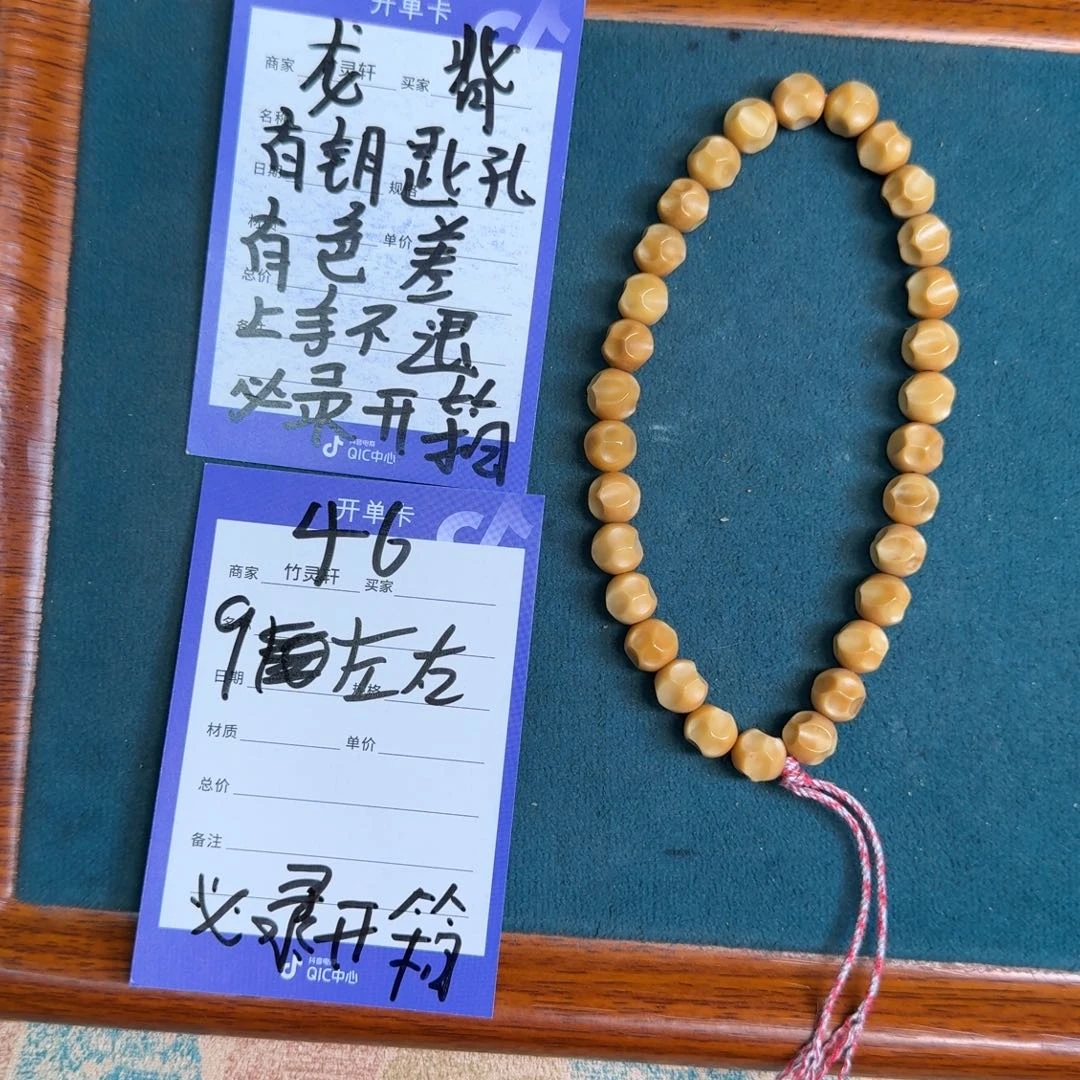 开单卡
龙背
商家 灵轩 买家
名称
有钥匙孔
日期 规格
有色差
材 单价
总价
上手不退
备
必录开箱
抖音电商
QIC中心
开单卡
46
商家 竹灵轩 买家
9 左右
日期 规格
材质 单价
总价
备注
必录开箱
抖音电商
QIC中心